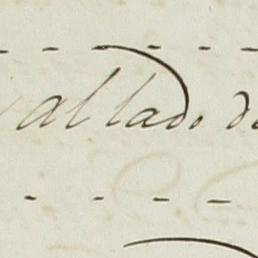 al lado de